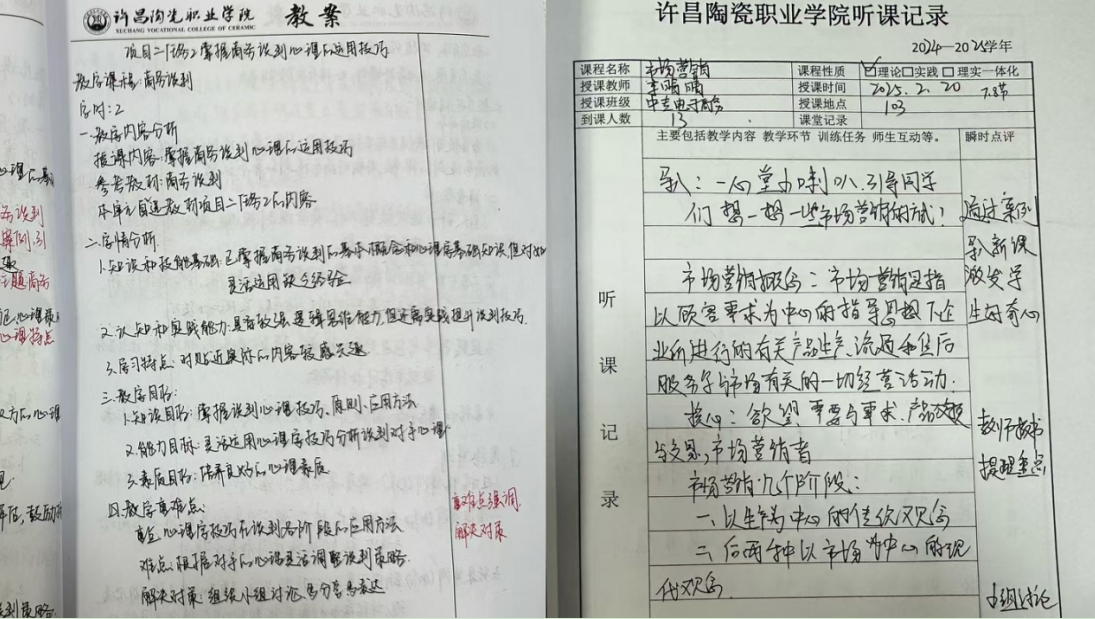 许昌陶瓷职业学院 教案
XUCHANG VOCATIONAL COLLEGE OF CERAMIC
项目二任务2掌握商务谈判心理的运用技巧
教学课程:商务谈判
学时:2
一.教学内容分析
授课内容:掌握商务谈判心理的运用技巧
参考教材:商务谈判
本单元自选教材项目二任务2的内容
二.学情分析
1.知识和技能基础:已掌握商务谈判的基本概念和心理学基础知识,但对如
灵活运用缺乏经验
2.认知和实践能力:具有较强逻辑思维能力,但还需实践提升谈判技巧.
3.学习特点:对贴近实际的内容较感兴趣
三.教学目标:
1.知识目标:掌握谈判心理技巧、原则、应用方法
2.能力目标:灵活运用心理学技巧分析谈判对手心理
3.素质目标:培养良好的心理素质
四.教学重难点:
重点:心理学技巧在谈判各阶段的应用方法
难点:根据对手的心理灵活调整谈判策略.
解决对策:组织小组讨论,多分享多表达
重难点强调,
解决对策
许昌陶瓷职业学院听课记录
2024—2025学年
课程名称 市场营销 课程性质 ☑理论□实践 □ 理实一体化
授课教师 李晴晴 授课时间 2025.2.20 7.8节
授课班级 中专电子商务 授课地点 103
到课人数 13 课堂记录
主要包括教学内容 教学环节 训练任务 师生互动等。 瞬时点评
听课记录
导入:一心堂小喇叭.引导同学
们想一想一些市场营销的方式!
市场营销概念:市场营销是指
以顾客需求为中心的指导思想下企
业所进行的有关产品生产、流通和售后
服务等与市场有关的一切经营活动.
核心:欲望、需要与需求、产品效用
与交易,市场营销者
市场营销几个阶段:
一、以生产为中心的传统观念
二、后两种以市场为中心的现
代观念
通过案例
导入新课
激发学
生好奇心
教师板书
提醒重点
小组讨论